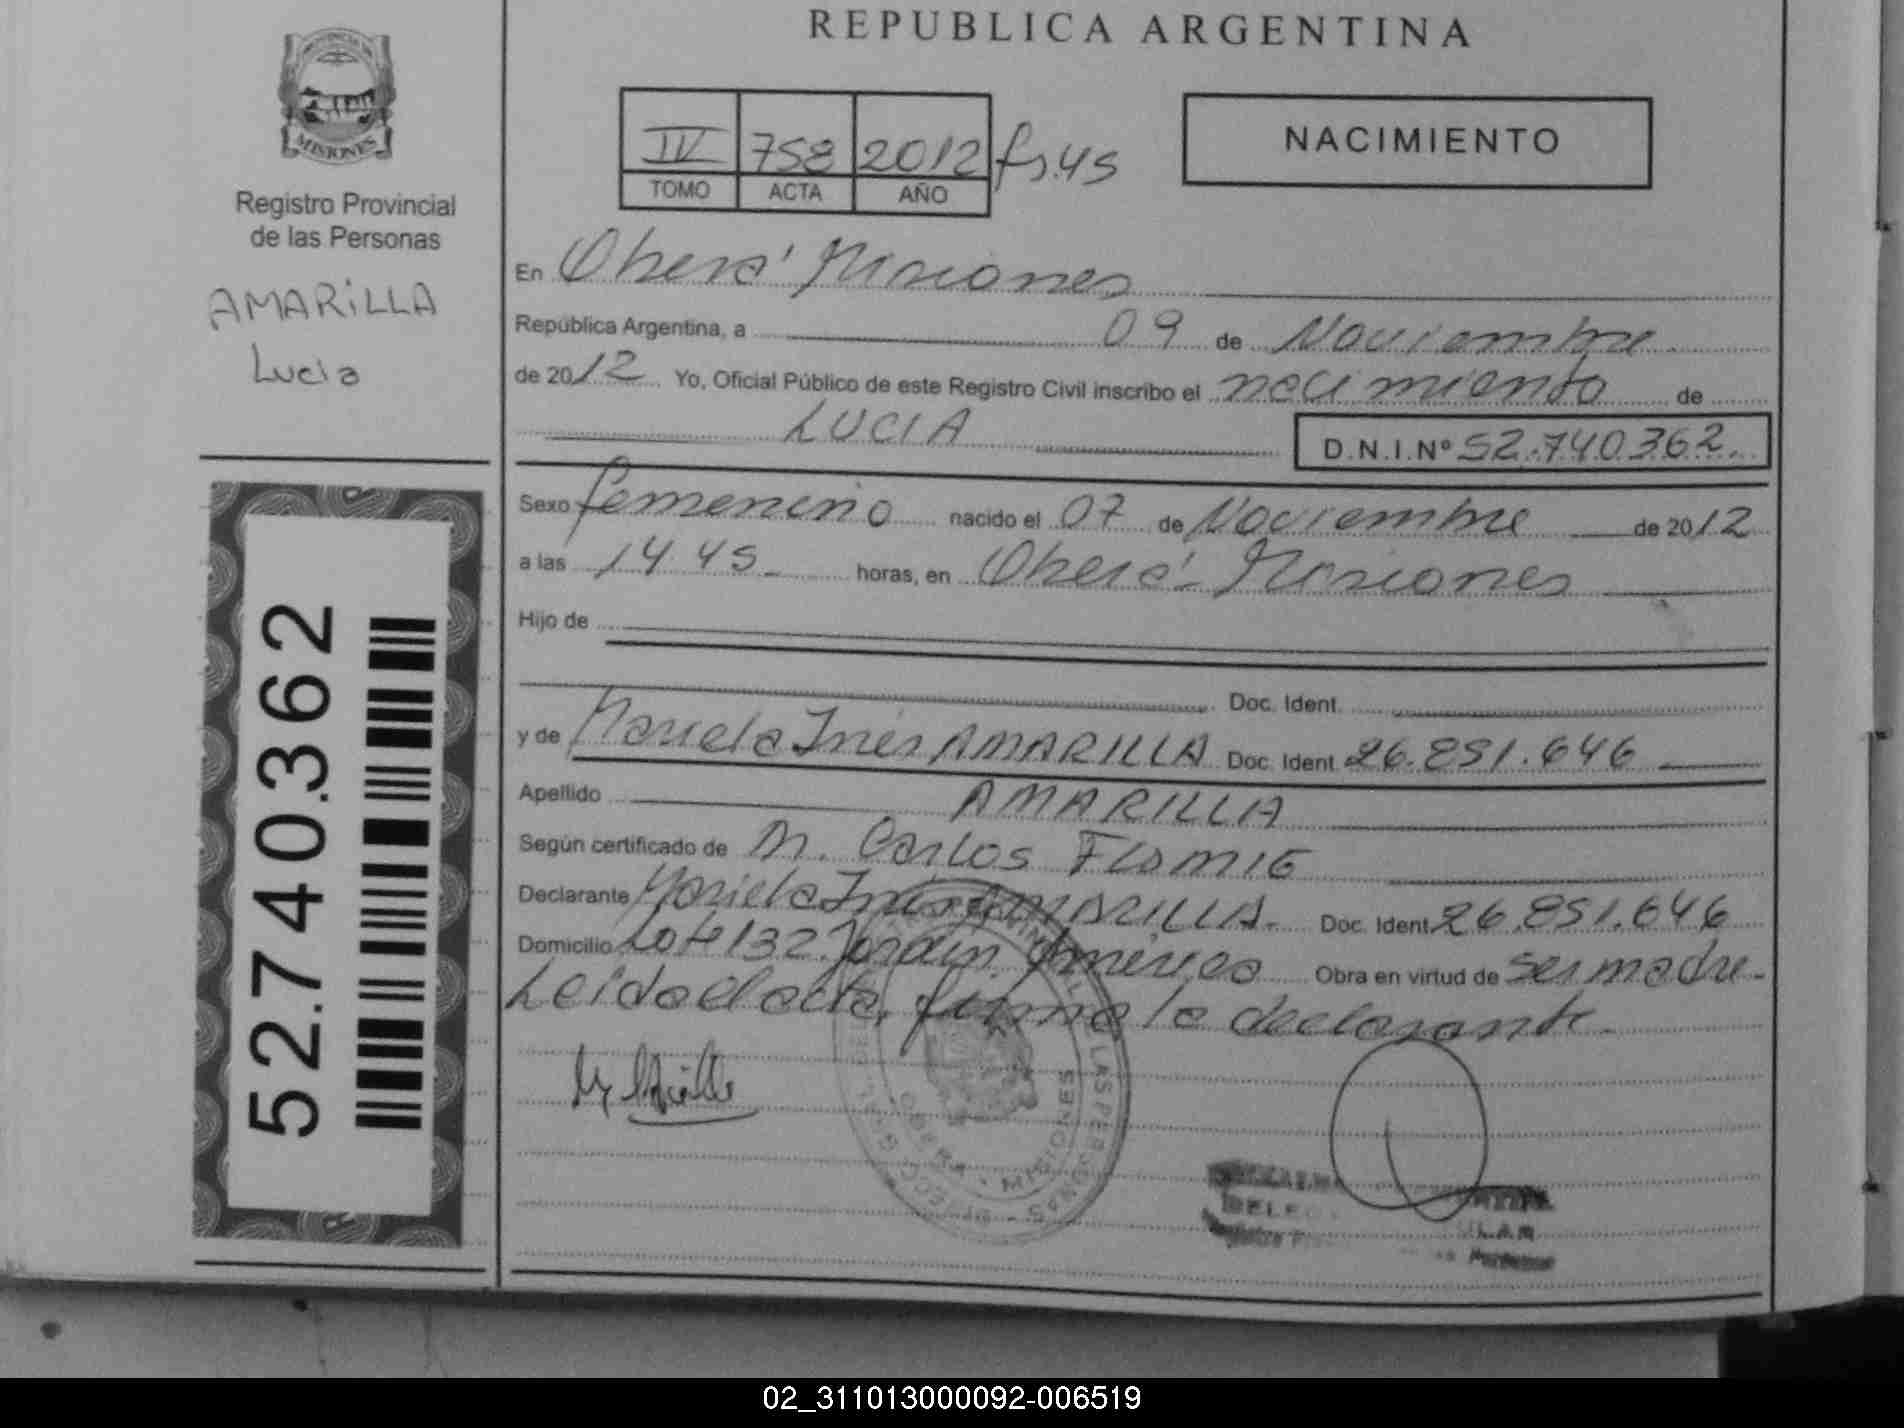 REPUBLICA ARGENTINA
PROVINCIA DE
MISIONES
Registro Provincial
de las Personas
AMARILLA
Lucia
IV 758 2012 fs.45
TOMO ACTA AÑO
NACIMIENTO
En Oberá Misiones
República Argentina, a 09 de Noviembre
de 2012 Yo, Oficial Público de este Registro Civil inscribo el nacimiento de
LUCIA D.N.I.Nº 52.740.362.
Sexo femenino nacido el 07 de Noviembre de 2012
a las 14 45 horas, en Oberá - Misiones
Hijo de
Doc. Ident.
y de Mariela Inés AMARILLA Doc. Ident. 26.851.646
Apellido AMARILLA
Según certificado de Carlos
Declarante Mariela Inés AMARILLA. Doc. Ident. 26.851.646
Domicilio Lote 132. América Obra en virtud de ser madre.
Leida el acta, firma la declarante.
52.740.362
OBERA - MISIONES
02_311013000092-006519